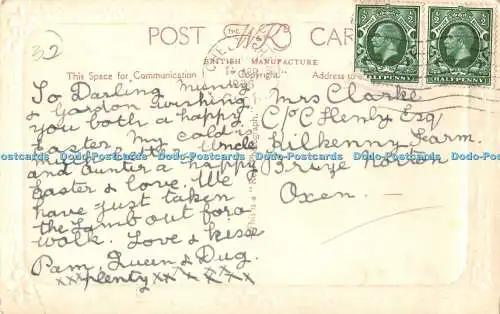 32
POST CAR
THE
W.R.
BRITISH MANUFACTURE
This Space for Communication
Copyright.
Address to
HALFPENNY
HALFPENNY
To Darling Mummy
& Gordon wishing
you both a happy
Easter. My cold is
much better. Uncle
and Aunter a happy
Easter & love. We
have just taken
the Lamb out for a
walk. Love & kisses
Pam, Queen & Dug.
xx plenty xxxxxx
Mrs Clarke
C/o C Henly Esq
Kilkenny Farm
Brize Norton
Oxon.
This is a "
Dodo-Postcards Dodo-Postcards Dodo-Postcards Dodo-Postcards Dodo-Postcards Dodo-Postcards